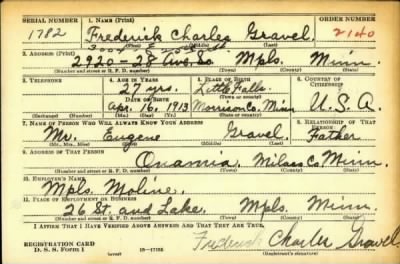 SERIAL NUMBER 1. NAME (Print) ORDER NUMBER
1782 Frederick Charles Gravel. 2140
(First) (Middle) (Last)
2. ADDRESS (Print)
2920-28 Ave. So. Mpls. Minn.
(Number and street or R. F. D. number) (Town) (County) (State)
3. TELEPHONE 4. AGE IN YEARS 5. PLACE OF BIRTH 6. COUNTRY OF CITIZENSHIP
27 yrs. Little Falls
DATE OF BIRTH (Town or county)
Apr. 16, 1913 Morrison Co. Minn U.S.A.
(Exchange) (Number) (Mo.) (Day) (Yr.) (State or country)
7. NAME OF PERSON WHO WILL ALWAYS KNOW YOUR ADDRESS 8. RELATIONSHIP OF THAT PERSON
Mr. Eugene Gravel. Father
(Mr., Mrs., Miss) (First) (Middle) (Last)
9. ADDRESS OF THAT PERSON
Onamia, Milaca Co. Minn.
(Number and street or R. F. D. number) (Town) (County) (State)
10. EMPLOYER'S NAME
Mpls. Moline.
11. PLACE OF EMPLOYMENT OR BUSINESS
26 St. and Lake. Mpls. Minn.
(Number and street or R. F. D. number) (Town) (County) (State)
I AFFIRM THAT I HAVE VERIFIED ABOVE ANSWERS AND THAT THEY ARE TRUE.
REGISTRATION CARD
D. S. S. Form 1 (over) 16-17105 Frederick Charles Gravel
(Registrant's signature)